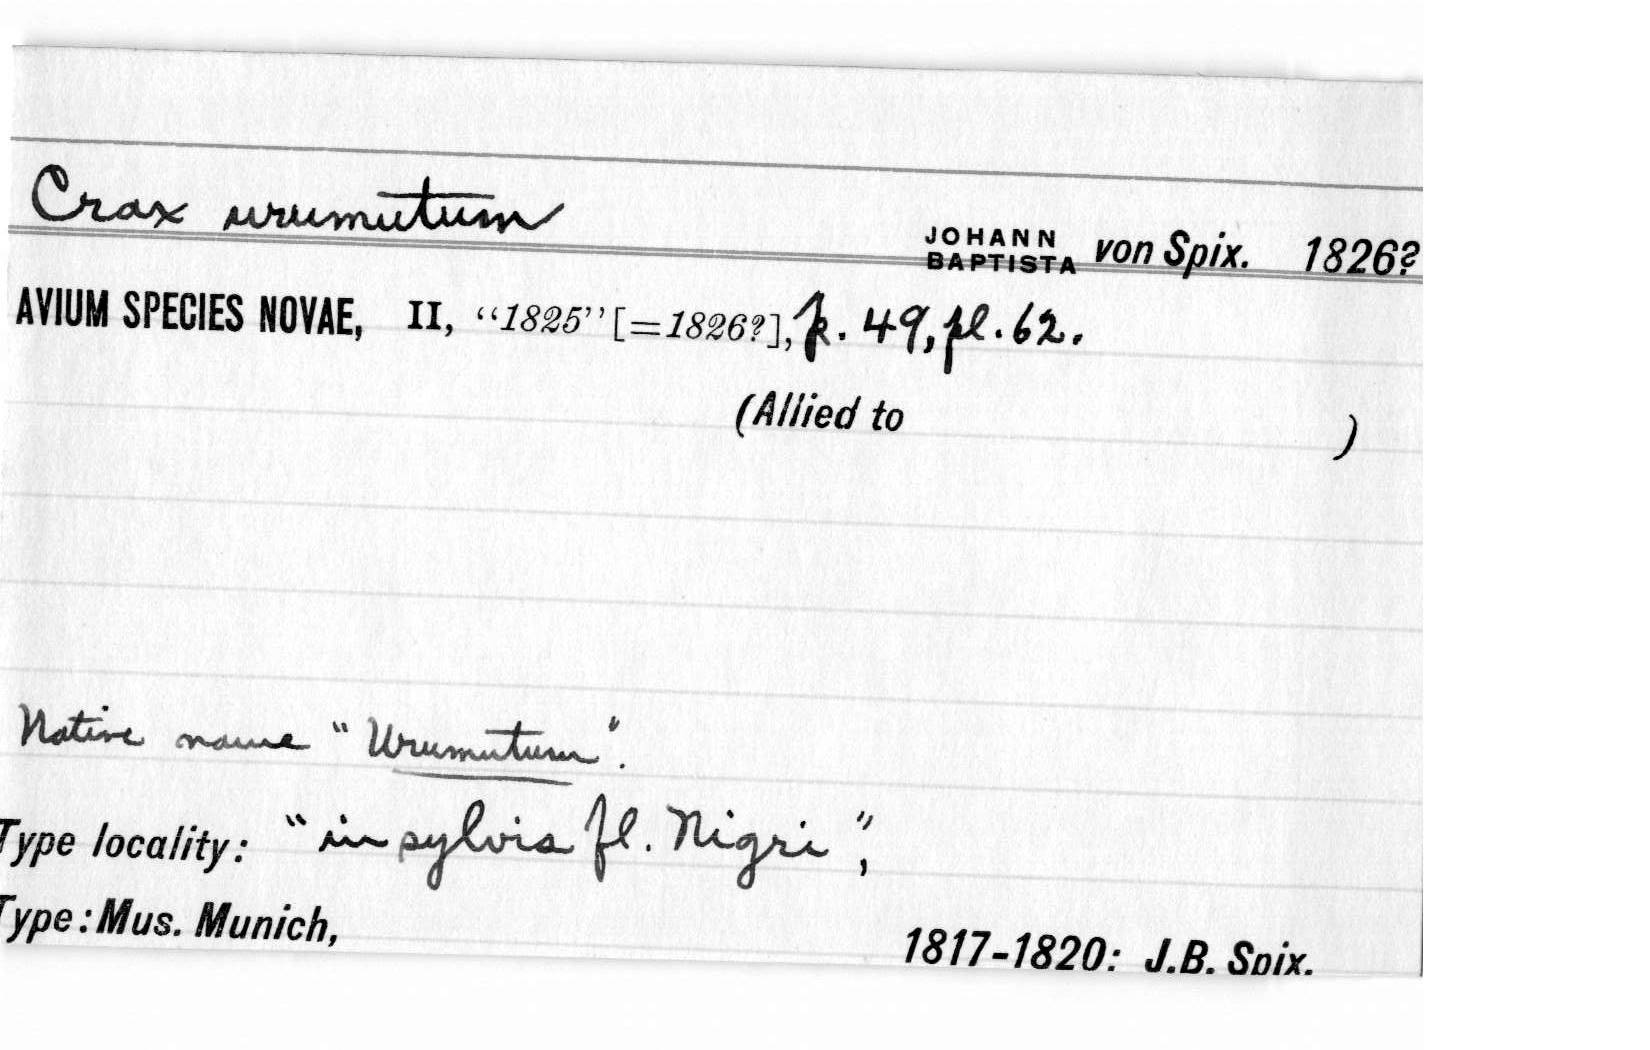 Crax urumutum
JOHANN BAPTISTA von Spix. 1826?
AVIUM SPECIES NOVAE, II, "1825" [=1826?], p. 49, pl. 62.
(Allied to )
Native name "Urumutum".
Type locality: "in sylvis fl. Nigri",
Type: Mus. Munich, 1817-1820: J.B. Spix.